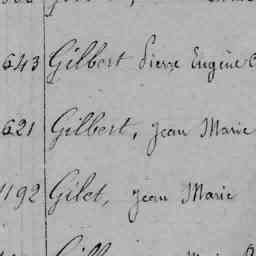 643 Gilbert Pierre Eugène
621 Gilbert, Jean Marie
1192 Gilet, Jean Marie